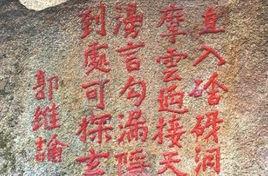 直入谽谺洞
摩雲逈接天
漫言勾漏隱
到處可探玄
郭維論